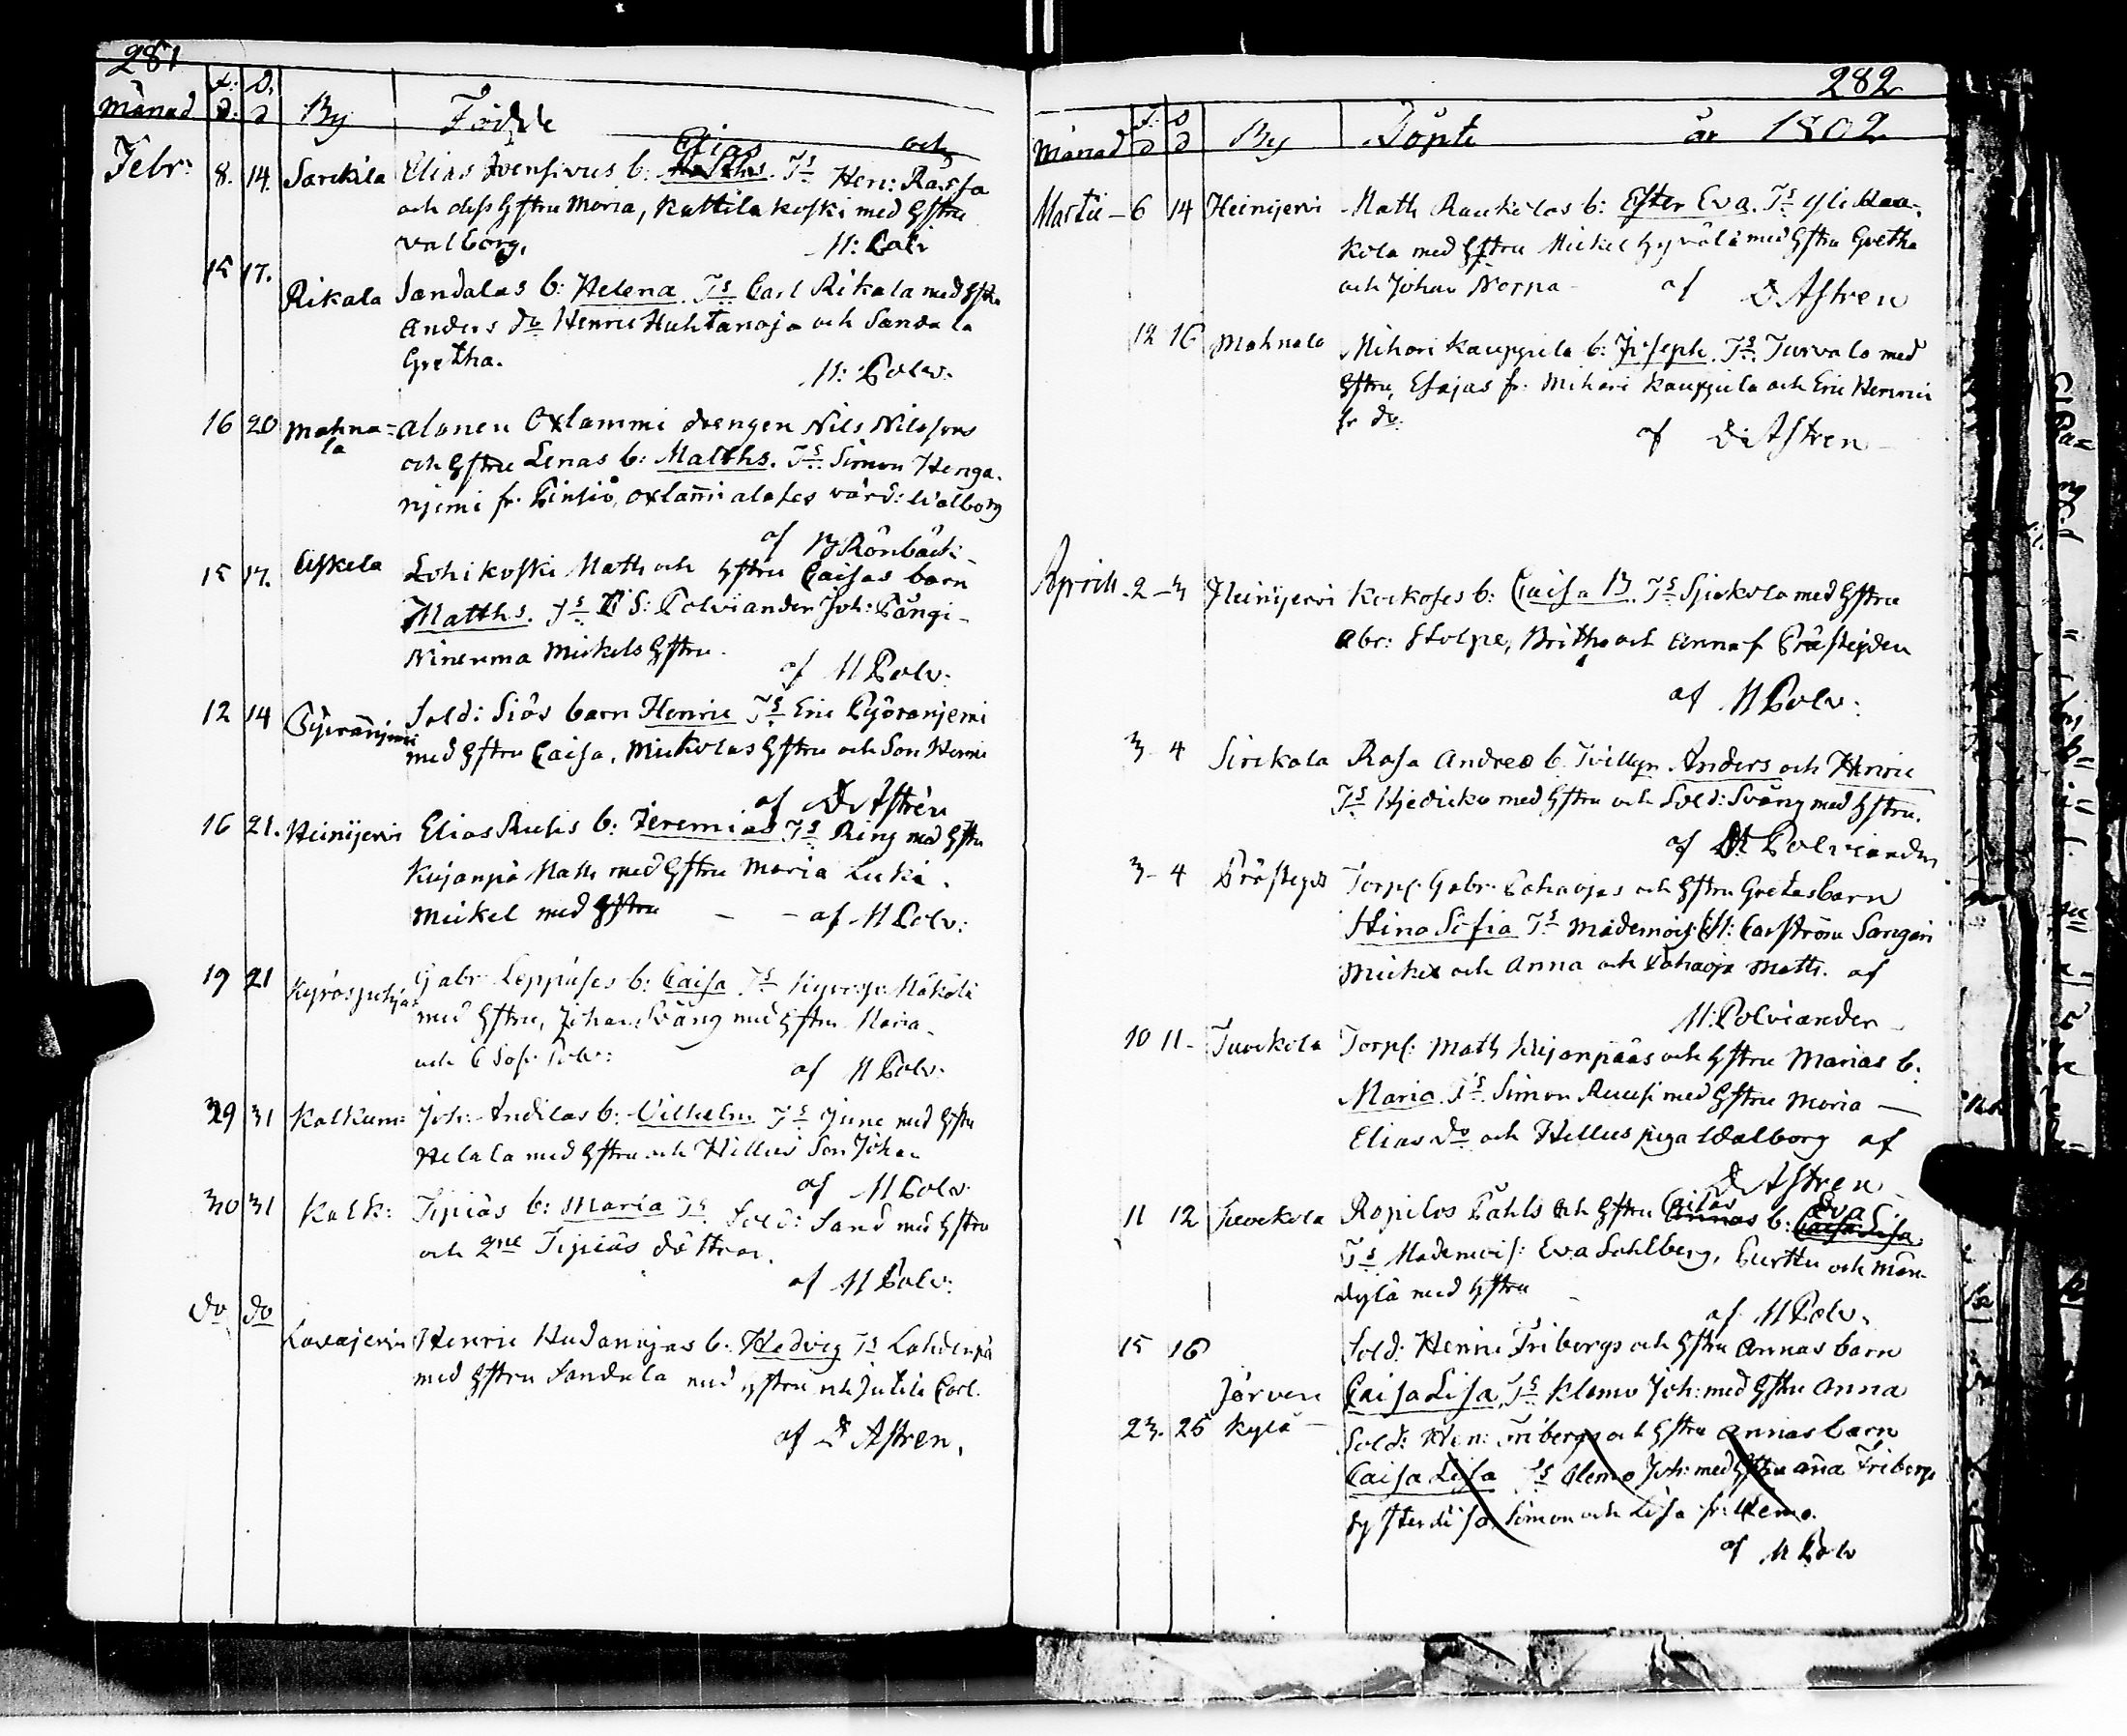 281
Månad f: d. D. d By Födde och
Febr: 8. 14. Sarckila Elias Ivensivus b: Elias Matths. Ts Hen: Rassa
och dess hstru Maria, Kattilakoski med hstru
Valborg. M: Polv
15 17.
Rikala Sandalas b: Helena. Ts Carl Rikala med hstru
Anders do Henric Huhtanoja och Sandala
Gretha.
M: Polv:
16 20 Mahna= Alanen Oxlammi drengen Nils Nilssons
la och hstru Lenas b: Matths. Ts Simon Henga-
njemi fr. Pinsiö, Oxlam̄i alases värd: Walborg
af B Rönbäck
15 17. Uskela Lohikoski Math och hstru Caisas barn
Matths. Ts C S: Polviander Joh: Pångi-
Ninenma Mickels hstru.
af M Polv:
12 14 Pyöranjemi Sold: Siös barn Henric Ts Eric Pyöranjemi
med hstru Caisa, Mickolas hstru och Son Henric
af D Astrén
16 21. Heinijervi Elias Rusis b: Jeremias Ts Ring med hstru
Kujanpä Math med hstru Maria Luki.
Mickel med hstru — - af M Polv:
19 21 Kyröspohja Gabr Leppäses b: Caisa Ts Kyrösp: Mäkelä
med hstru, Johan Sväng med hstru Maria
och C Sof. Polv:
af M Polv:
29 31 Kalkum: Joh: Andilas b: Vilhelm. Ts Ojune med hstru
Helala med hstru och Hillus Son Johan
af M Polv
30 31 Kalk: Tipiäs b: Maria Ts Sold: Sand med hstru
och 2ne Tipiäs döttrar.
af M Polv:
do do
Lavajervi Henric Hudanojas b: Hedvig Ts Lahdenpä
med hstru Sandula med hstru och Jutila Carl.
af D Astren.
282
Månad f: d D d By Döpte år 1802
Martii — 6 14 Heinijervi Math Raukolas b: Ester Eva. Ts Yli Mau-
kola med hstru Mickel Hyvölä med hstru Gretha
och Johan Norpa - af D Astren
12 16 Mahnala Mihari Kauppila b: Joseph. Ts Turvala med
hstru, Esajas fr. Mihari Kauppila och Eric Henrici
fr do.
af D: Astren
Aprill. 2 - 3 Heinijervi Kockoses b: Caisa B. Ts Sjökola med hstru
Abr: Stolpe, Britha och Anna f. Prästejden
af M Polv:
3 - 4 Sirckala Rasa Andreæ b. Tvillgn Anders och Henric
Ts Hjedicko med hstru och Sold: Sväng med hstru.
af M Polviander
3 - 4 Prästegd Torps. Gabr. Pahaojas och hstru Gretasbarn
Stina Sofia Ts Mademois. Chr: Carström Sangari
Mickel och Anna och Pahaoja Math. af
M: Polviander
10 11 - Tuockola Torps: Math Kujanpääs och hstru Marias b.
Maria. Ts. Simon Ruusi med hstru Maria —
Elias do och Hellus piga Walborg af
D Astren
11 12 Tuockola Ropilos Påhls och hstru Caisas Annas b: Eva C. Caisa Lisa.
Ts Mademois: Eva Sohlberg, Purttu och Män-
dylä med hstru -
af M Polv.
15 16 Sold: Henric Fribergs och hstru Annas barn
Järven Caisa Lisa, Ts Klemo Joh: med hstru Anna
23. 25 Kylä — Sold: Hen: Fribergs och hstru Annas barn
Caisa Lisa Ts Clemo Joh: med hstru An̄a Fribergs
Syster Lisa, Simon och Lisa fr: Klemo.
af M Polv